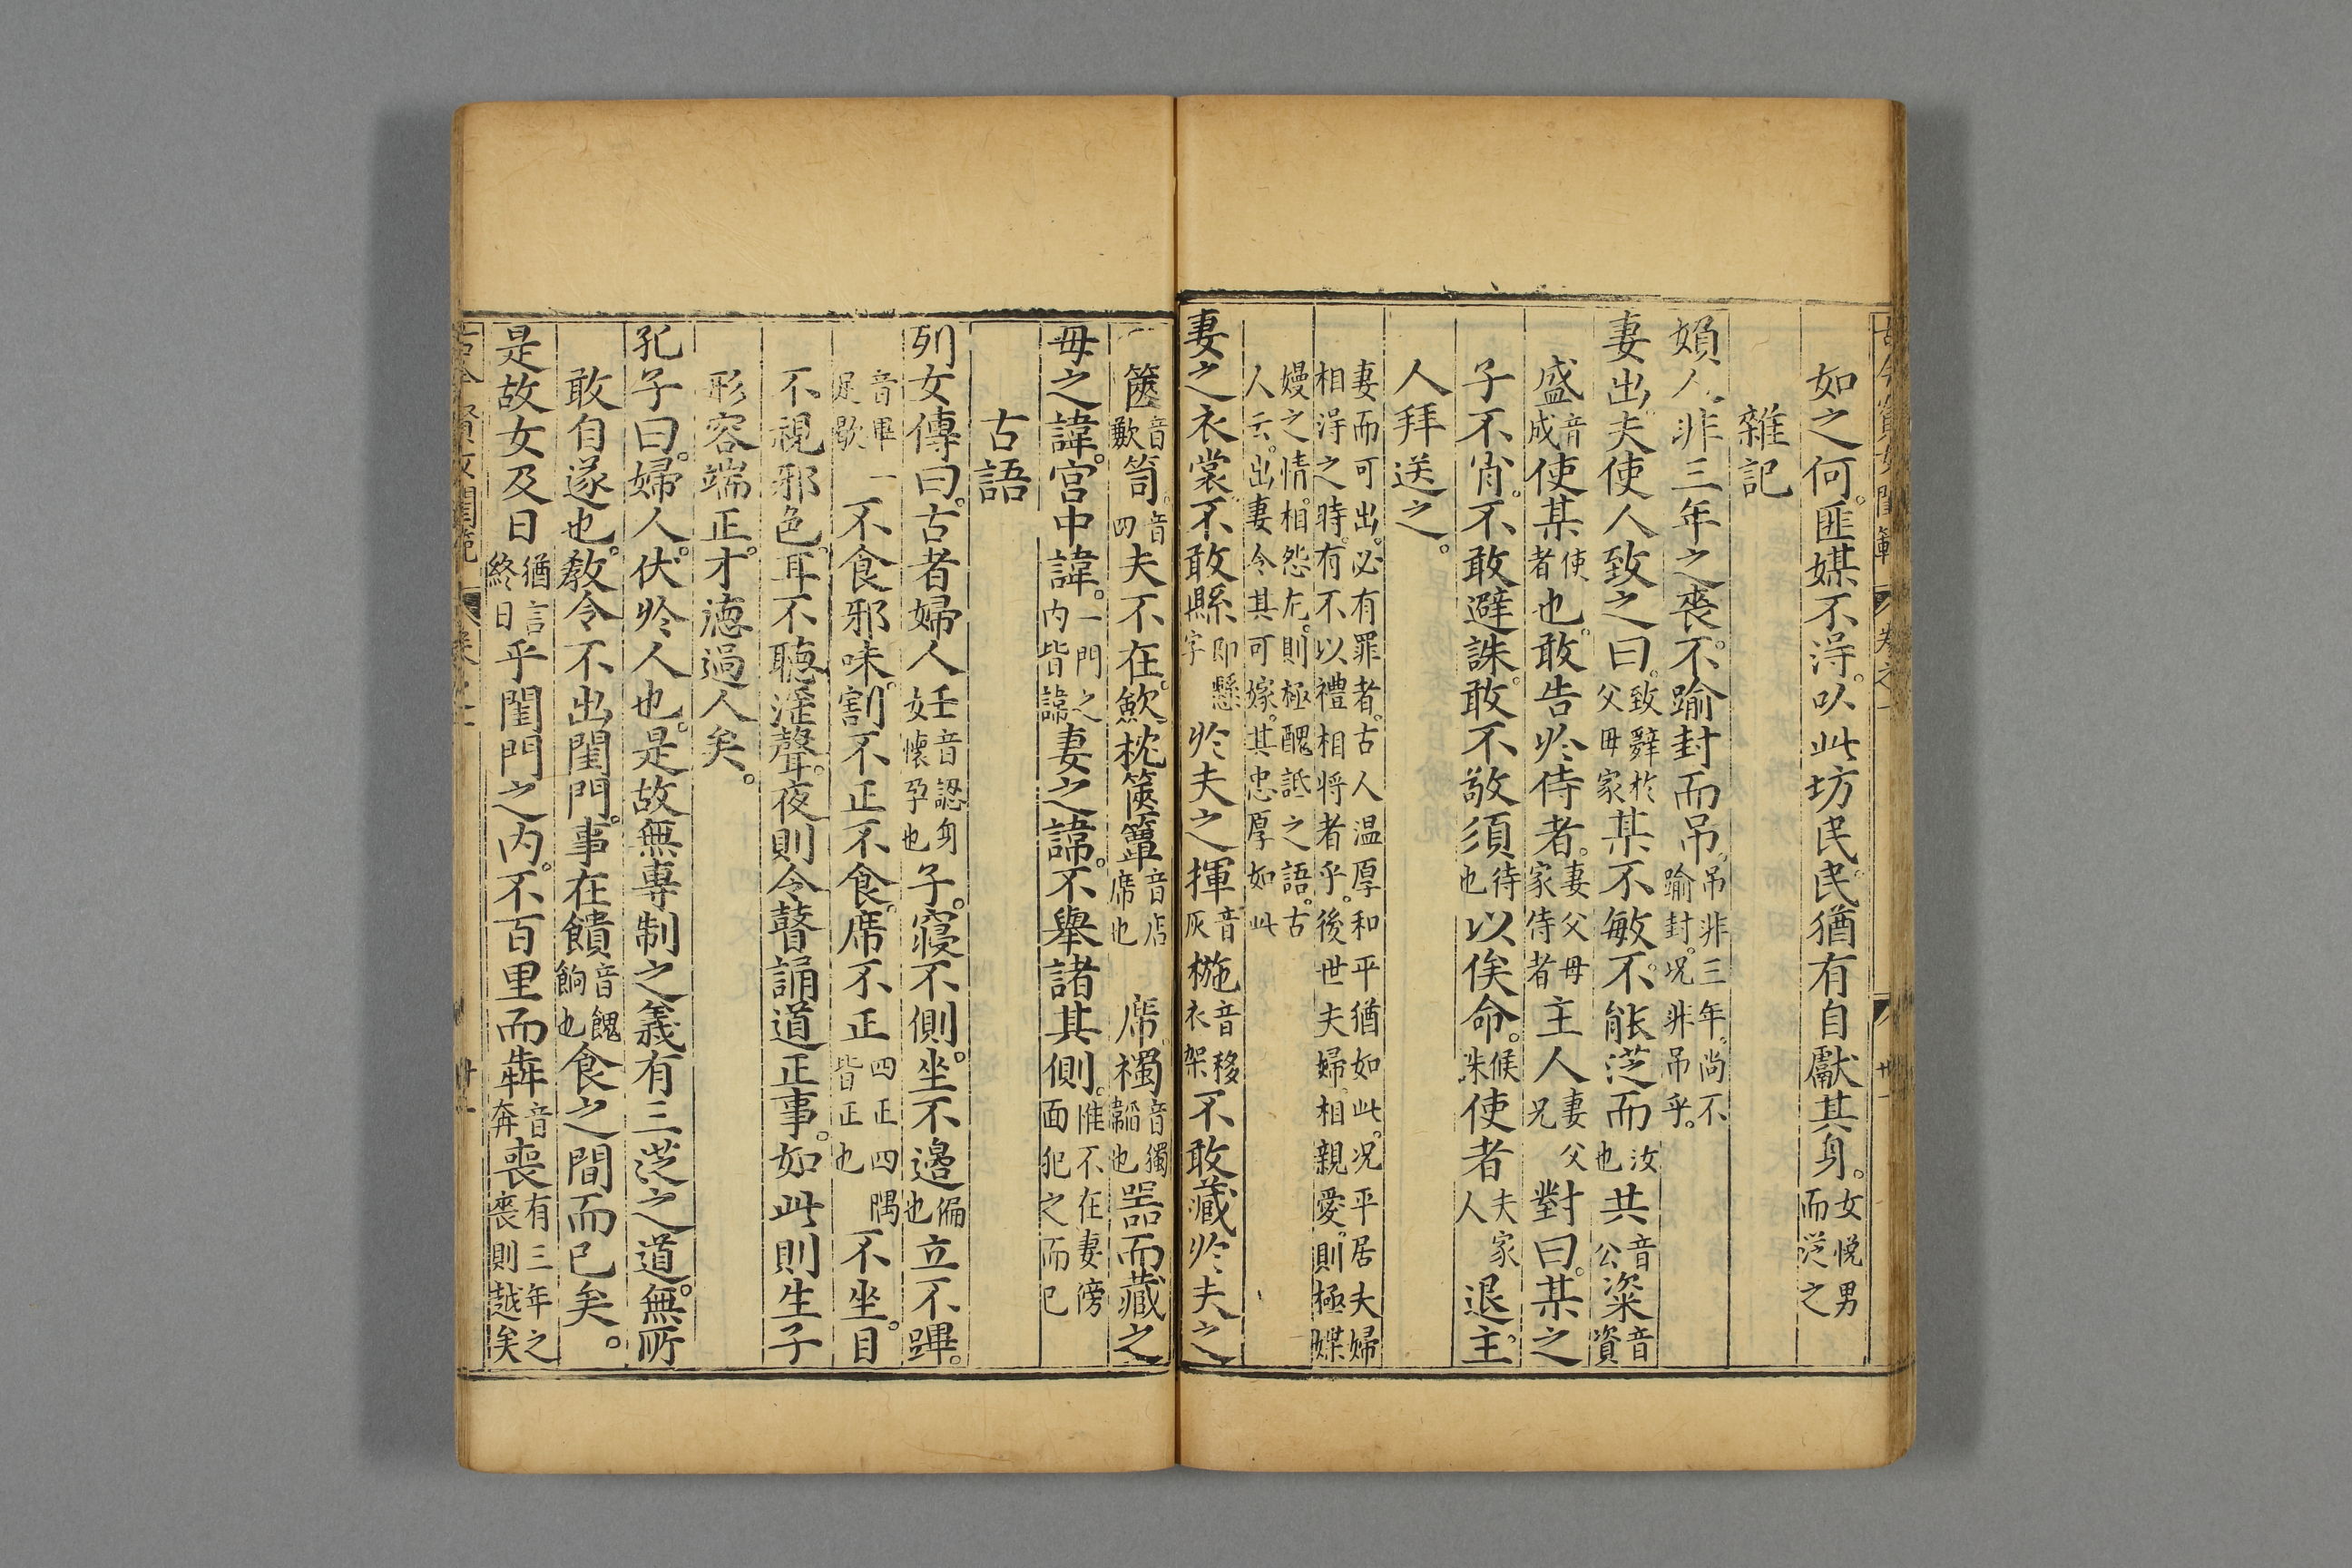 如之何。匪媒不淂。以此坊民。民猶有自獻其身。女悅男而從之
雜記
婦人非三年之喪。不踰封而吊。吊非三年。尚不踰封。况非吊乎。
妻出。夫使人致之曰。致辭於父毋家某不敏。不能從而汝也共音公粢音資
盛音成使某使者也。敢告於侍者。妻父毋家侍者主人妻父兄對曰。某之
子不肖。不敢避誅。敢不敬須待也以俟命。候誅使者夫家人退。主
人拜送之。
妻而可出。必有罪者。古人温厚和平猶如此。况平居夫婦
相淂之時。有不以禮相將者乎。後世夫婦。相親愛。則極媟
嫚之情。相怨尤。則極醜詆之語。古
人云。出妻令其可嫁。其忠厚如此
妻之衣裳。不敢縣即懸字於夫之揮音灰椸音移衣架不敢藏於夫之
篋音歉笥。音四夫不在。歛枕篋簟音店席也席襡音獨韜也器而藏之
毋之諱。宮中諱。一門之内皆諱妻之諱。不舉諸其側。惟不在妻傍面犯之而已
古語
列女傳曰。古者婦人妊音認身懷孕也子。寢不側。坐不邉偏也立不蹕。
音畢一足歇不食邪味。割不正不食。席不正四正四隅皆正也不坐。目
不視邪色。耳不聽淫聲。夜則令瞽誦道正事。如此則生子
形容端正。才德過人矣。
孔子曰。婦人。伏於人也。是故無專制之義有三從之道。無所
敢自遂也。教令不出閨門。事在饋音餽餉也食之間而已矣。
是故女及日猶言終日乎閨門之内。不百里而犇音奔喪有三年之喪則越矣